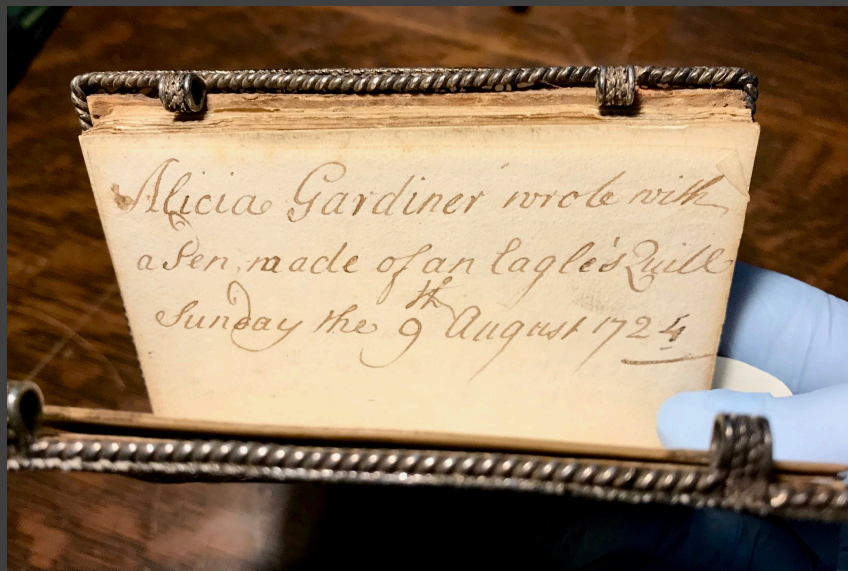 Alicia Gardiner wrote with
a Pen, made of an Eagle's Quill
Sunday the 9th August 1724